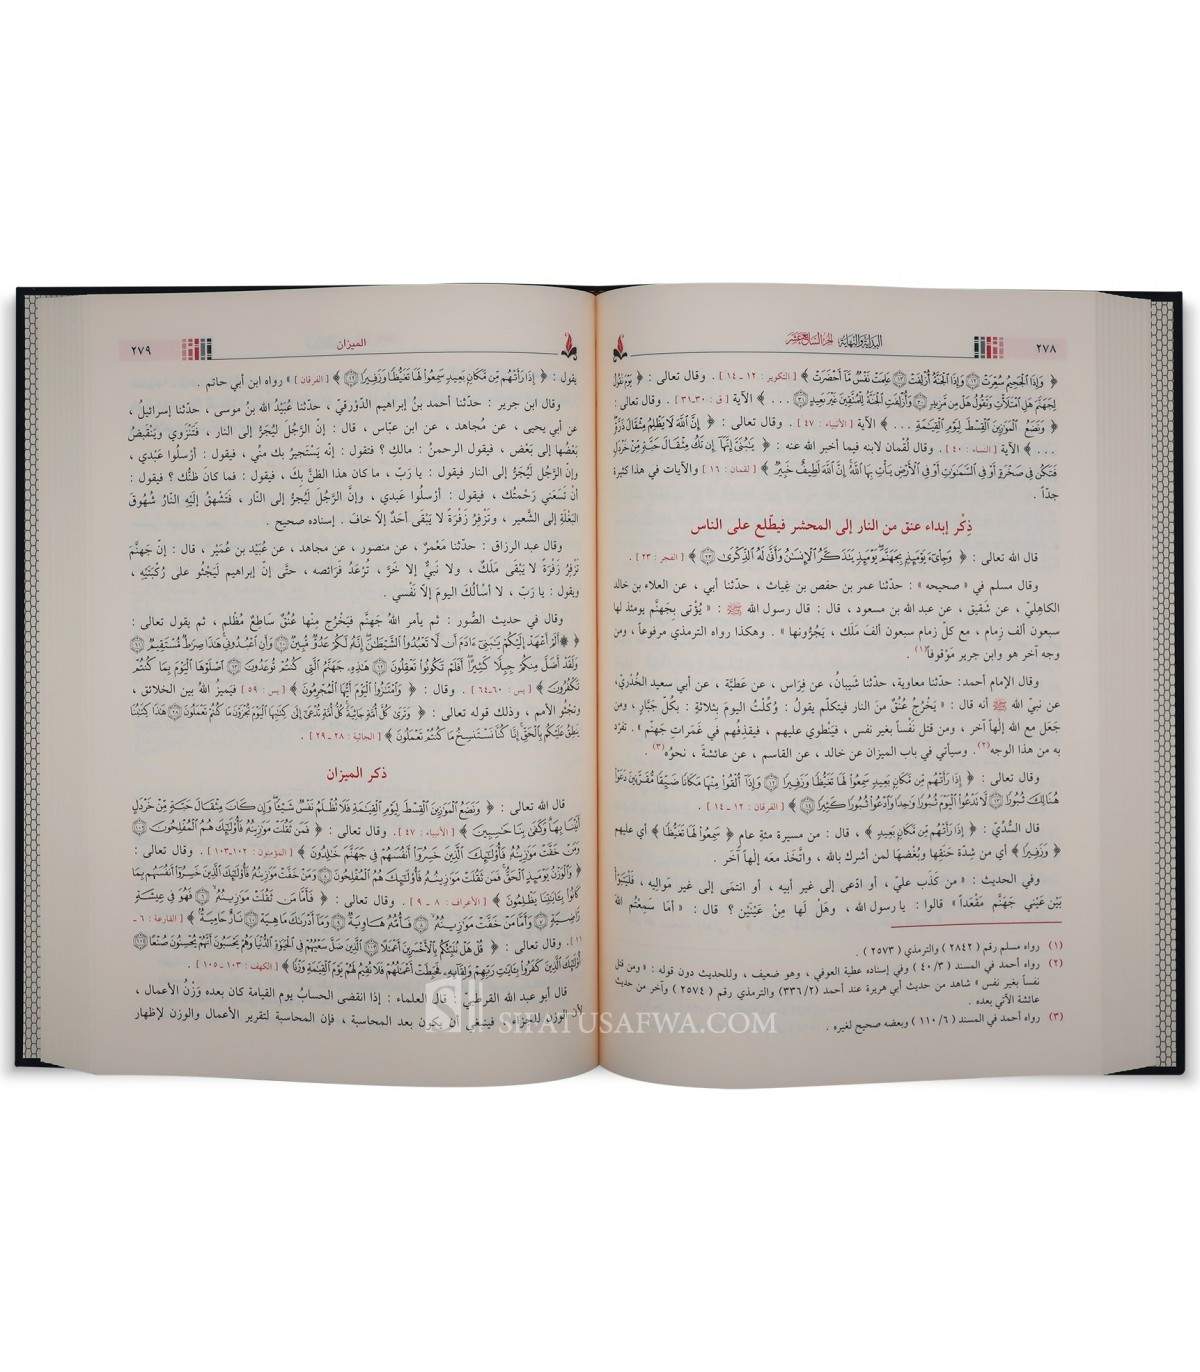 ٢٧٨
البداية والنهاية الجزء السابع عشر
﴿ وَإِذَا الْجَحِيمُ سُعِّرَتْ ١٢ وَإِذَا الْجَنَّةُ أُزْلِفَتْ ١٣ عَلِمَتْ نَفْسٌ مَّا أَحْضَرَتْ ﴾ [ التكوير : ١٢ - ١٤ ] . وقال تعالى : ﴿ يَوْمَ نَقُولُ
لِجَهَنَّمَ هَلِ امْتَلَأْتِ وَتَقُولُ هَلْ مِن مَّزِيدٍ ٣٠ وَأُزْلِفَتِ الْجَنَّةُ لِلْمُتَّقِينَ غَيْرَ بَعِيدٍ ٣١ ... ﴾ الآية [ ق : ٣٠-٣١ ] . وقال تعالى :
﴿ وَنَضَعُ الْمَوَازِينَ الْقِسْطَ لِيَوْمِ الْقِيَامَةِ ... ﴾ الآية [ الأنبياء : ٤٧ ] . وقال تعالى : ﴿ إِنَّ اللَّهَ لَا يَظْلِمُ مِثْقَالَ ذَرَّةٍ
... ﴾ الآية [ النساء : ٤٠ ] . وقال لُقمان لابنه فيما أخبر الله عنه : ﴿ يَا بُنَيَّ إِنَّهَا إِن تَكُ مِثْقَالَ حَبَّةٍ مِّنْ خَرْدَلٍ
فَتَكُن فِي صَخْرَةٍ أَوْ فِي السَّمَاوَاتِ أَوْ فِي الْأَرْضِ يَأْتِ بِهَا اللَّهُ إِنَّ اللَّهَ لَطِيفٌ خَبِيرٌ ﴾ [ لقمان : ١٦ ] والآيات في هذا كثيرة
جدّاً .
ذِكْر إبداء عنق من النار إلى المحشر فيطّلع على الناس
قال الله تعالى : ﴿ وَجِيءَ يَوْمَئِذٍ بِجَهَنَّمَ يَوْمَئِذٍ يَتَذَكَّرُ الْإِنسَانُ وَأَنَّى لَهُ الذِّكْرَى ٢٣ ﴾ [ الفجر : ٢٣ ] .
وقال مسلم في « صحيحه » : حدّثنا عمر بن حفص بن غِياث ، حدّثنا أبي ، عن العلاء بن خالد
الكاهليّ ، عن شقيق ، عن عبد الله بن مسعود ، قال : قال رسول الله ﷺ : « يُؤْتى بِجَهَنَّم يومئذ لها
سبعون ألف زِمام ، مع كلّ زمام سبعون ألفَ مَلَك ، يَجُرُّونها » . وهكذا رواه الترمذي مرفوعاً ، ومن
وجه آخر هو وابن جرير مَوْقوفاً(١) .
وقال الإمام أحمد: حدّثنا معاوية، حدّثنا شَيبانُ، عن فِرَاس ، عن عَطيَّة ، عن أبي سعيد الخُدْريّ،
عن نبيّ الله ﷺ أنه قال : « يَخْرُجُ عُنُقٌ مِنَ النار فيتكلّم يقولُ : وُكِّلْتُ اليومَ بِثلاثةٍ : بكُلّ جَبَّار ، ومن
جَعَل مع الله إلٰهاً آخر ، ومن قتل نَفْساً بغير نفس ، فيَنْطوي عليهم ، فيقذِفُهم في غَمَراتِ جَهنَّم » . تفرّد
به من هذا الوجه(٢) . وسيأتي في باب الميزان عن خالد ، عن القاسم ، عن عائشةَ ، نحوُه(٣) .
وقال تعالى : ﴿ إِذَا رَأَتْهُم مِّن مَّكَانٍ بَعِيدٍ سَمِعُوا لَهَا تَغَيُّظًا وَزَفِيرًا ١٢ وَإِذَا أُلْقُوا مِنْهَا مَكَانًا ضَيِّقًا مُّقَرَّنِينَ دَعَوْا
هُنَالِكَ ثُبُورًا ١٣ لَا تَدْعُوا الْيَوْمَ ثُبُورًا وَاحِدًا وَادْعُوا ثُبُورًا كَثِيرًا ١٤ ﴾ [ الفرقان : ١٢ - ١٤ ] .
قال السُّدِّيّ : ﴿ إِذَا رَأَتْهُم مِّن مَّكَانٍ بَعِيدٍ ﴾ ، قال : من مسيرة مئةِ عام ﴿ سَمِعُوا لَهَا تَغَيُّظًا ﴾ أي عليهم
﴿ وَزَفِيرًا ﴾ أي من شِدّة حَنَقِها وبُغْضِها لمن أشرك بالله ، واتَّخَذ معَه إلٰهاً آخر .
وفي الحديث : « من كَذَب عليّ ، أو ادّعى إلى غير أبيه ، أو انتمَى إلى غير مَواليه ، فَلْيَتَبَوَّأْ
بَيْن عَيْني جَهَنَّم مَقْعَداً » قالوا : يا رسول الله ، وهَلْ لها مِنْ عَيْنَيْن ؟ قال : « أمَا سَمِعْتُم اللهَ
(١) رواه مسلم رقم ( ٢٨٤٢ ) والترمذي ( ٢٥٧٣ ) .
(٢) رواه أحمد في المسند ( ٣/ ٤٠ ) وفي إسناده عطية العوفي ، وهو ضعيف ، وللحديث دون قوله : « ومن قتل
نفساً بغير نفس » شاهد من حديث أبي هريرة عند أحمد (٢/ ٣٣٦) والترمذي رقم ( ٢٥٧٤ ) وآخر من حديث
عائشة الآتي بعده .
(٣) رواه أحمد في المسند ( ٦/ ١١٠ ) وبعضه صحيح لغيره .
الميزان
٢٧٩
يقول : ﴿ إِذَا رَأَتْهُم مِّن مَّكَانٍ بَعِيدٍ سَمِعُوا لَهَا تَغَيُّظًا وَزَفِيرًا ١٢ ﴾ [ الفرقان ] » رواه ابن أبي حاتم .
وقال ابن جرير : حدّثنا أحمد بنُ إبراهيم الدَّوْرقيّ ، حدّثنا عُبَيْدُ الله بنُ موسى ، حدّثنا إسرائيلُ ،
عن أبي يحيى ، عن مُجاهد ، عن ابن عبّاس ، قال : إنّ الرَّجُل لَيُجَرُّ إلى النار ، فَتَنْزَوي ويَنْقَبِضُ
بَعْضُها إلى بَعْض ، فيقول الرحمنُ : مالكِ ؟ فتقول : إنّه يَسْتَجيرُ بك منّي ، فيقول : أرْسِلُوا عَبْدي ،
وإنّ الرَّجُل لَيُجَرُّ إلى النار فيقول : يا رَبّ ، ما كان هذا الظنَّ بِكَ ، فيقول : فما كانَ ظنُّك ؟ فيقول :
أنْ تَسَعَني رَحْمتُك ، فيقول : أرْسِلُوا عَبدي ، وإنَّ الرَّجُلَ لَيُجرُّ إلى النّار ، فَتَشهَقُ إليْهِ النّارُ شُهُوقَ
البَغْلَةِ إلى الشَّعير ، وتَزْفِرُ زَفْرَةً لا يَبْقى أحَدٌ إلاّ خافَ . إسناده صحيح .
وقال عبد الرزاق : حدّثنا مَعْمَرٌ ، عن منصور ، عن مجاهد ، عن عُبَيْد بن عُمَيْر ، قال : إنّ جَهنَّمَ
تَزْفِرُ زَفْرَةً لا يَبْقَى مَلَكٌ ، ولا نَبيٌّ إلا خَرَّ ، تُرْعَدُ فَرائصه ، حتَّى إنّ إبراهيم لَيَجْثُو على رُكْبَتَيْهِ ،
ويقول : يا رَبّ ، لا أسْألُكَ اليومَ إلاّ نَفْسي .
وقال في حديث الصُّور : ثم يأمر اللهُ جَهنَّم فيَخْرُج مِنْها عُنُقٌ ساطِعٌ مُظْلِم ، ثم يقول تعالى :
﴿ أَلَمْ أَعْهَدْ إِلَيْكُمْ يَا بَنِي آدَمَ أَن لَّا تَعْبُدُوا الشَّيْطَانَ إِنَّهُ لَكُمْ عَدُوٌّ مُّبِينٌ ٦٠ وَأَنِ اعْبُدُونِي هَذَا صِرَاطٌ مُّسْتَقِيمٌ ٦١
وَلَقَدْ أَضَلَّ مِنكُمْ جِبِلًّا كَثِيرًا أَفَلَمْ تَكُونُوا تَعْقِلُونَ ٦٢ هَذِهِ جَهَنَّمُ الَّتِي كُنتُمْ تُوعَدُونَ ٦٣ اصْلَوْهَا الْيَوْمَ بِمَا كُنتُمْ
تَكْفُرُونَ ﴾ [ يس : ٦٠-٦٤ ] . وقال : ﴿ وَامْتَازُوا الْيَوْمَ أَيُّهَا الْمُجْرِمُونَ ﴾ [ يس : ٥٩ ] فيَميزُ اللهُ بين الخلائق ،
وتَجْثُو الأمم ، وذلك قوله تعالى : ﴿ وَتَرَى كُلَّ أُمَّةٍ جَاثِيَةً كُلُّ أُمَّةٍ تُدْعَى إِلَى كِتَابِهَا الْيَوْمَ تُجْزَوْنَ مَا كُنتُمْ تَعْمَلُونَ ٢٨ هَذَا كِتَابُنَا
يَنطِقُ عَلَيْكُم بِالْحَقِّ إِنَّا كُنَّا نَسْتَنسِخُ مَا كُنتُمْ تَعْمَلُونَ ﴾ [ الجاثية : ٢٨ - ٢٩ ] .
ذكر الميزان
قال الله تعالى : ﴿ وَنَضَعُ الْمَوَازِينَ الْقِسْطَ لِيَوْمِ الْقِيَامَةِ فَلَا تُظْلَمُ نَفْسٌ شَيْئًا وَإِن كَانَ مِثْقَالَ حَبَّةٍ مِّنْ خَرْدَلٍ
أَتَيْنَا بِهَا وَكَفَى بِنَا حَاسِبِينَ ﴾ [ الأنبياء : ٤٧ ] . وقال تعالى : ﴿ فَمَن ثَقُلَتْ مَوَازِينُهُ فَأُولَئِكَ هُمُ الْمُفْلِحُونَ ١٠٢
وَمَنْ خَفَّتْ مَوَازِينُهُ فَأُولَئِكَ الَّذِينَ خَسِرُوا أَنفُسَهُمْ فِي جَهَنَّمَ خَالِدُونَ ﴾ [ المؤمنون : ١٠٢-١٠٣ ] . وقال تعالى :
﴿ وَالْوَزْنُ يَوْمَئِذٍ الْحَقُّ فَمَن ثَقُلَتْ مَوَازِينُهُ فَأُولَئِكَ هُمُ الْمُفْلِحُونَ ٨ وَمَنْ خَفَّتْ مَوَازِينُهُ فَأُولَئِكَ الَّذِينَ خَسِرُوا أَنفُسَهُم بِمَا
كَانُوا بِآيَاتِنَا يَظْلِمُونَ ﴾ [ الأعراف : ٨ - ٩ ] . وقال تعالى : ﴿ فَأَمَّا مَن ثَقُلَتْ مَوَازِينُهُ ٦ فَهُوَ فِي عِيشَةٍ
رَّاضِيَةٍ ٧ وَأَمَّا مَنْ خَفَّتْ مَوَازِينُهُ ٨ فَأُمُّهُ هَاوِيَةٌ ٩ وَمَا أَدْرَاكَ مَا هِيَهْ ١٠ نَارٌ حَامِيَةٌ ﴾ [ القارعة : ٦ -
١١ ] . وقال تعالى : ﴿ قُلْ هَلْ نُنَبِّئُكُم بِالْأَخْسَرِينَ أَعْمَالًا ١٠٣ الَّذِينَ ضَلَّ سَعْيُهُمْ فِي الْحَيَاةِ الدُّنْيَا وَهُمْ يَحْسَبُونَ أَنَّهُمْ يُحْسِنُونَ صُنْعًا ١٠٤
أُولَئِكَ الَّذِينَ كَفَرُوا بِآيَاتِ رَبِّهِمْ وَلِقَائِهِ فَحَبِطَتْ أَعْمَالُهُمْ فَلَا نُقِيمُ لَهُمْ يَوْمَ الْقِيَامَةِ وَزْنًا ﴾ [ الكهف : ١٠٣ - ١٠٥ ] .
قال أبو عبد الله القرطبيّ : قال العلماء : إذا انقضى الحسابُ يوم القيامة كان بعده وَزْنُ الأعمال ،
لأن الوزن للجزاء ، فينبغي أن يكون بعد المحاسبة ، فإن المحاسبة لتقرير الأعمال والوزن لإظهار
SIFATUSAFWA.COM